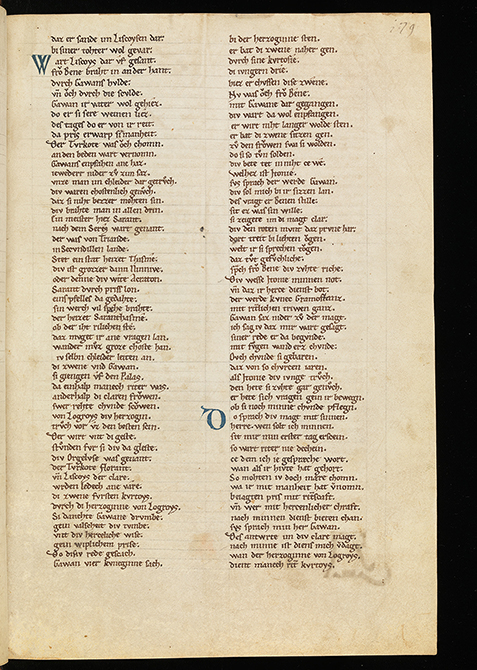 daz er sande im Liscoysen dar.
bi siner tohter wol gevar.
Wart Liscoys dar vf gesant.
frǒ Bene braht in an der hant.
dvrch Gawans hvlde.
vn̄ ǒch dvrch die scvlde.
Gawan ir vater wol gehiez.
do er si sere weinen liez.
des tages do er von ir reit.
da pris erwarp si manheit.
Der Tvrkote was ǒch chomn.
an den beden wart vernomn.
Gawans enpfahen ane haz.
iewederr nider zv zim saz.
vnze man im chleider dar getrvch.
div waren chostenlich genvch.
daz si niht bezzer mohten sin.
div brahte man in allen drin.
ein meister hiez Sarant.
nach dem Seres wart genant.
der was von Triande.
in Secvndillen lande.
Stet ein stat heizet Thasme.
div ist grozer dann Ninnive.
oder denne div wite Acraton.
Sarant dvrch pris lon.
eins pfelles da gedahte.
sin werch vil spehe brahte.
der heizet Saranthasme.
ob der iht rilichen ste.
daz mvget ir ane vragen lan.
wander mvz groze choste han.
iv selbn chleider leiten an.
di zwene vnd Gawan.
si giengen vf den Palas.
da einhalp manech riter was.
anderhalp di claren frǒwen.
swer rehte chvnde scǒwen.
von Logroys div herzogin.
trvch vor vz den besten scin.
Der wirt vnt di geste.
stvnden fvr si div da gleste.
div Orgelvse was genant.
der Tvrkote Florant.
vn̄ Liscoys der clare.
wrden ledech ane vare.
di zwene fvrsten kvrtoys.
dvrch di herzoginne von Logroys.
Si danchte Gawane drvmbe.
gein valscheit div tvmbe.
vnt div herzeliche wise.
gein wiplichem prise.
Do disiv rede gescach.
Gawan vier kvneginne sach.
bi der herzoginne sten.
er bat di zwene naher gen.
dvrch sine kvrtosie.
di ivngern drie.
hiez er chvssen dise zwene.
Nv was ǒch frǒ Bene.
mit Gawane dar gegangen.
div wart da wol enpfangen.
er wirt niht langer wolde sten.
er bat di zwene sitzen gen.
zv den frǒwen swa si wolden.
do si so tvn solden.
div bete tet in niht ze we.
welhez ist Jtonie.
svs sprach der werde Gawan.
div sol mich bi ir sitzen lan.
des vragt er Benen stille.
sit ez was sin wille.
si zeigete im di magt clar.
div den roten mvnt daz prvne har.
dort treit bi liehten ǒgen.
welt ir si sprechen tǒgen.
daz tvt gefvchliche.
sp̄ch frǒ Bene div zvhte riche.
Div wesse Jtonie minnen not.
vn̄ daz ir herze dienst bot.
der werde kvnec Gramoflanz.
mit ritlichen triwen ganz.
Gawan saz nider zv der magt.
ich sag iv daz mir wart gesagt.
siner rede er da begvnde.
mit fvgen wand erz chvnde.
Ovch chvnde si gebaren.
daz von so chvrcen iaren.
als Jtonie div ivnge trvch.
den hete si zvhte gar genvch.
er hete sich vragen gein ir bewegn.
ob si noch minne chvnde pflegn.
Do sprach div magt mit sinnen.
herre. wen solt ich minnen.
sit mir min erster tag erscein.
so wart riter nie dechein.
ze dem ich ie gespræche wort.
wan als ir hivte hat gehort.
So mohten iv doch mære chomn.
wa ir mit manheit hat v̄nomn.
beiagten pris mit riterscaft.
vn̄ wer mit herzenlicher chraft.
nach minnen dienst bieten chan.
svs sprach min her Gawan.
Des antwrte im div clare magt.
nach minne ist diens mich v̄dagt.
wan der herzoginne von Logroys.
dient manech riter kvrtoys.